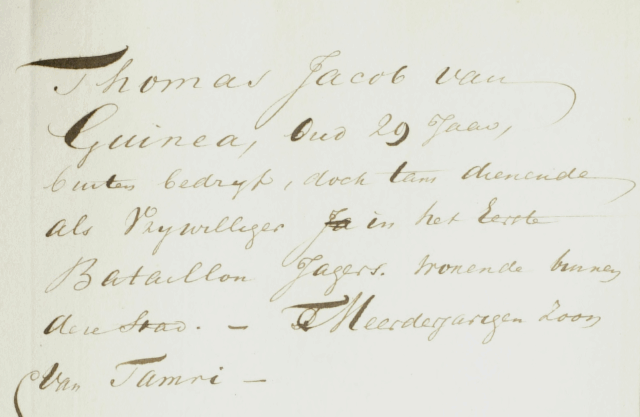 Thomas Jacob van
Guinea, Oud 29 Jaar,
buiten bedryf, doch tans dienende
als Vrywilliger Ja in het Eerste
Bataillon Jagers. wonende binnen
deze Stad. — Meerderjarigen Zoon
van Tamri —